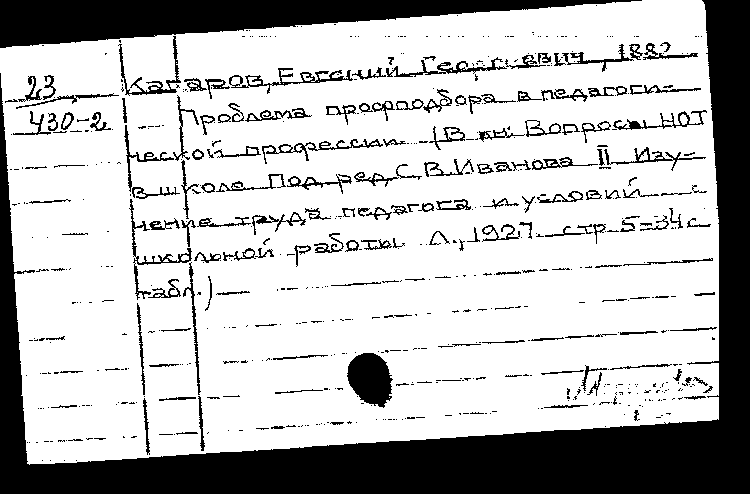 23
430-2
Кагаров, Евгений Георгиевич, 1882
Проблема профподбора в педагоги-
ческой профессии. (В кн: Вопросы НОТ
в школе Под ред. С.В.Иванова II Изу-
чение труда педагога и условий
школьной работы Л., 1927. стр 5-34 с
табл.)